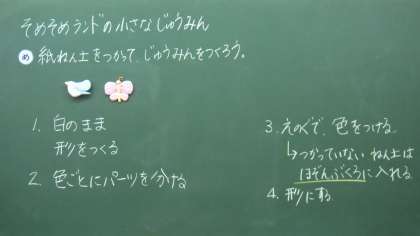 そめそめランドの小さなじゅうみん
め 紙ねん土をつかって、じゅうみんをつくろう。
1. 白のまま
形をつくる
2. 色ごとにパーツを分ける
3. えのぐで、色をつける。
↳つかっていない ねん土は
ほぞんぶくろに入れる
4. 形にする